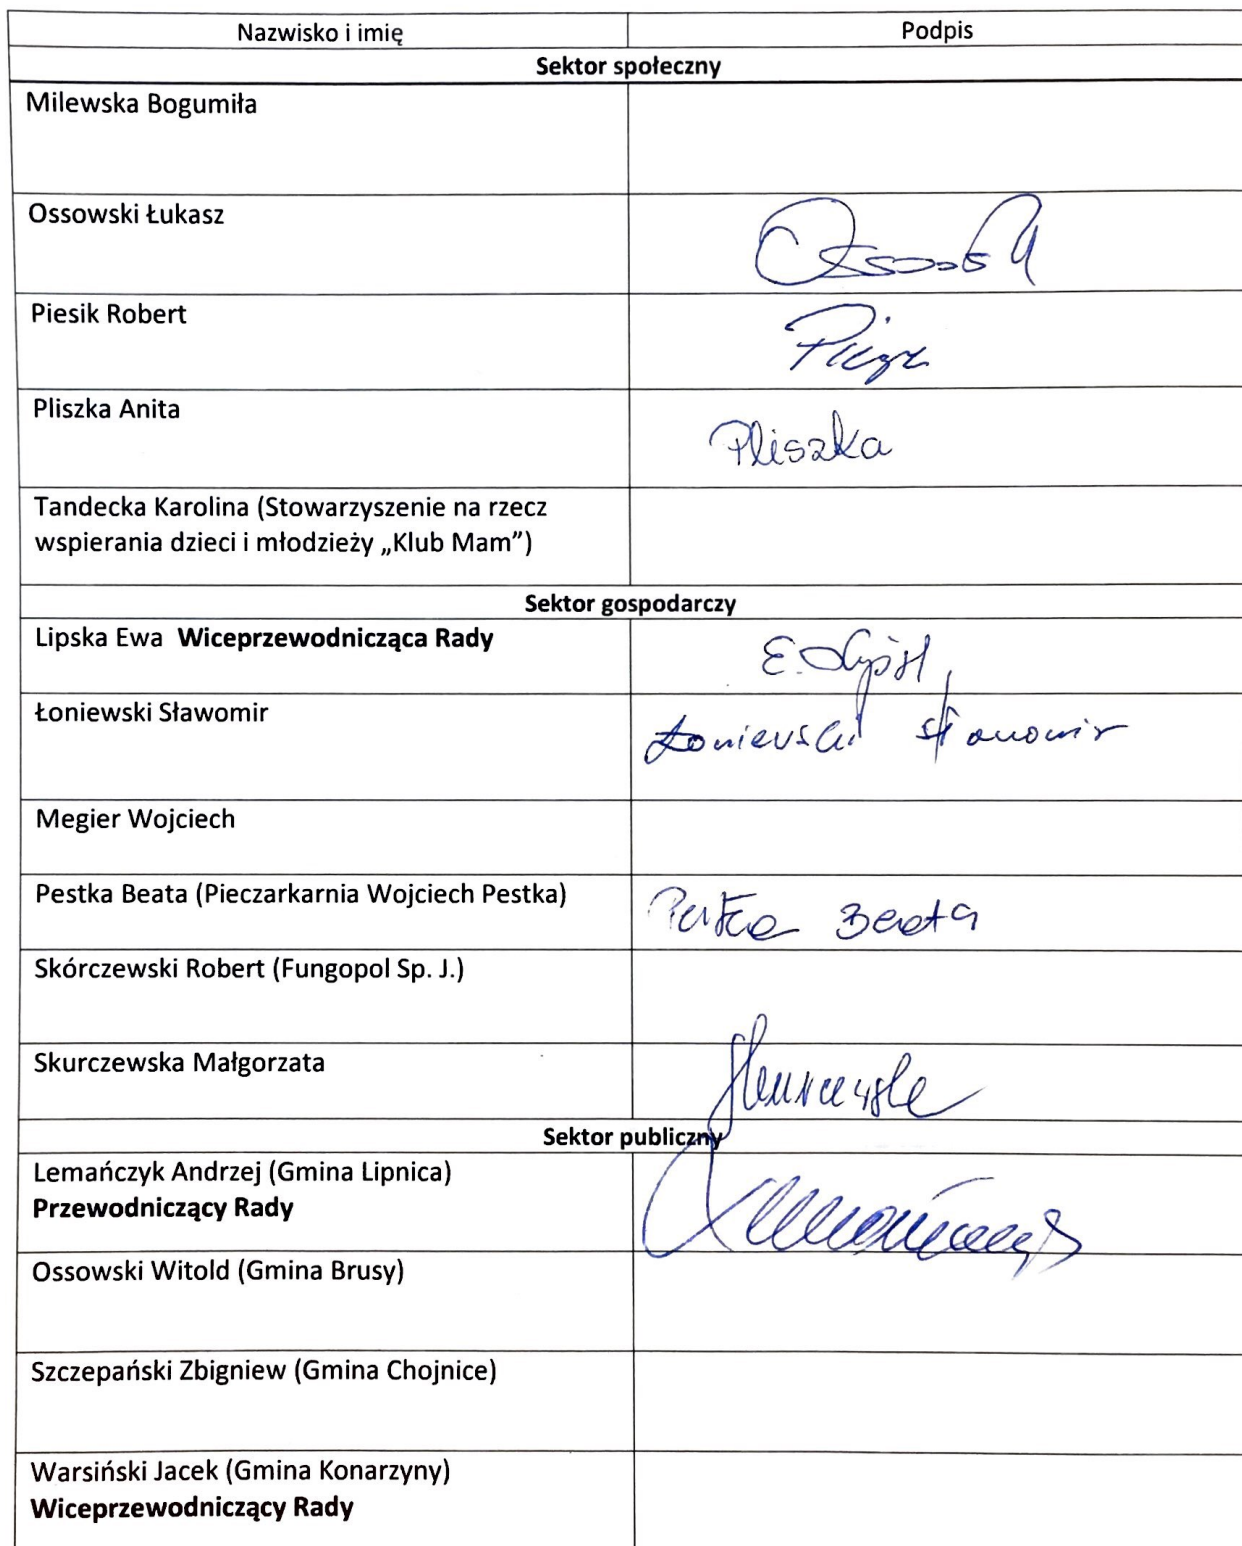 Nazwisko i imię
Podpis
Sektor społeczny
Milewska Bogumiła
Ossowski Łukasz
Piesik Robert
Pliszka Anita
Pliszka
Tandecka Karolina (Stowarzyszenie na rzecz
wspierania dzieci i młodzieży „Klub Mam”)
Sektor gospodarczy
Lipska Ewa Wiceprzewodnicząca Rady
Łoniewski Sławomir
Łoniewski Sławomir
Megier Wojciech
Pestka Beata (Pieczarkarnia Wojciech Pestka)
Pestka Beata
Skórczewski Robert (Fungopol Sp. J.)
Skurczewska Małgorzata
Sektor publiczny
Lemańczyk Andrzej (Gmina Lipnica)
Przewodniczący Rady
Ossowski Witold (Gmina Brusy)
Szczepański Zbigniew (Gmina Chojnice)
Warsiński Jacek (Gmina Konarzyny)
Wiceprzewodniczący Rady